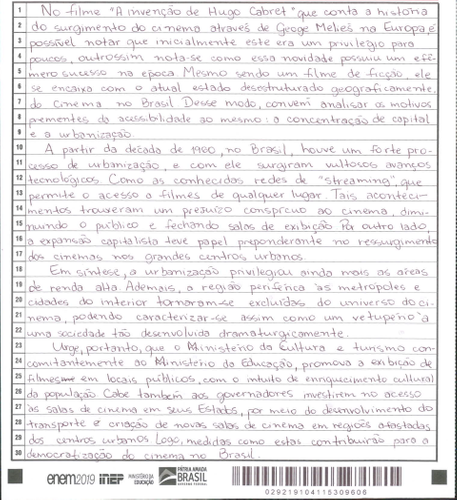 1 No filme "A invenção de Hugo Cabret" que conta a história
2 do surgimento do cinema através de Geoge Meliès na Europa, é
3 possível notar que inicialmente este era um privilégio para
4 poucos, outrossim nota-se como essa novidade possuiu um efê-
5 mero sucesso na época. Mesmo sendo um filme de ficção, ele
6 se encaixa com o atual estado desestruturado geograficamente
7 do cinema no Brasil Desse modo, convém analisar os motivos
8 prementes da acessibilidade ao mesmo: a concentração de capital
9 e a urbanização.
10 A partir da década de 1980, no Brasil, houve um forte pro-
11 cesso de urbanização, e com ele surgiram vultosos avanços
12 tecnológicos Como as conhecidas redes de "streaming", que
13 permite o acesso a filmes de qualquer lugar Tais aconteci-
14 mentos trouxeram um prejuizo conspícuo ao cinema, dimi-
15 nuindo o público e fechando salas de exibição Por outro lado,
16 a expansão capitalista teve papel preponderante no ressurgimento
17 dos cinemas nos grandes centros urbanos.
18 Em síntese, a urbanização privilegiou ainda mais as áreas
19 de renda alta. Ademais, a região periférica às metrópoles e
20 cidades do interior tornaram-se excluídas do universo do ci-
21 nema, podendo caracterizar-se assim como um vetupério à
22 uma sociedade tão desenvolvida dramaturgicamente.
23 Urge, portanto, que o Ministério da Cultura e turismo con-
24 comitantemente ao Ministério da Educação, promova a exibição de
25 filmes em locais públicos, com o intuito de enriquecimento cultural
26 da população Cabe também aos governadores investirem no acesso
27 às salas de cinema em seus Estados, por meio do desenvolvimento do
28 transporte e criação de novas salas de cinema em regiões afastadas
29 dos centros urbanos Logo, medidas como estas contribuirão para a
30 democratização do cinema no Brasil.
enem2019 inep MINISTÉRIO DA EDUCAÇÃO PÁTRIA AMADA BRASIL GOVERNO FEDERAL
029219104115309606